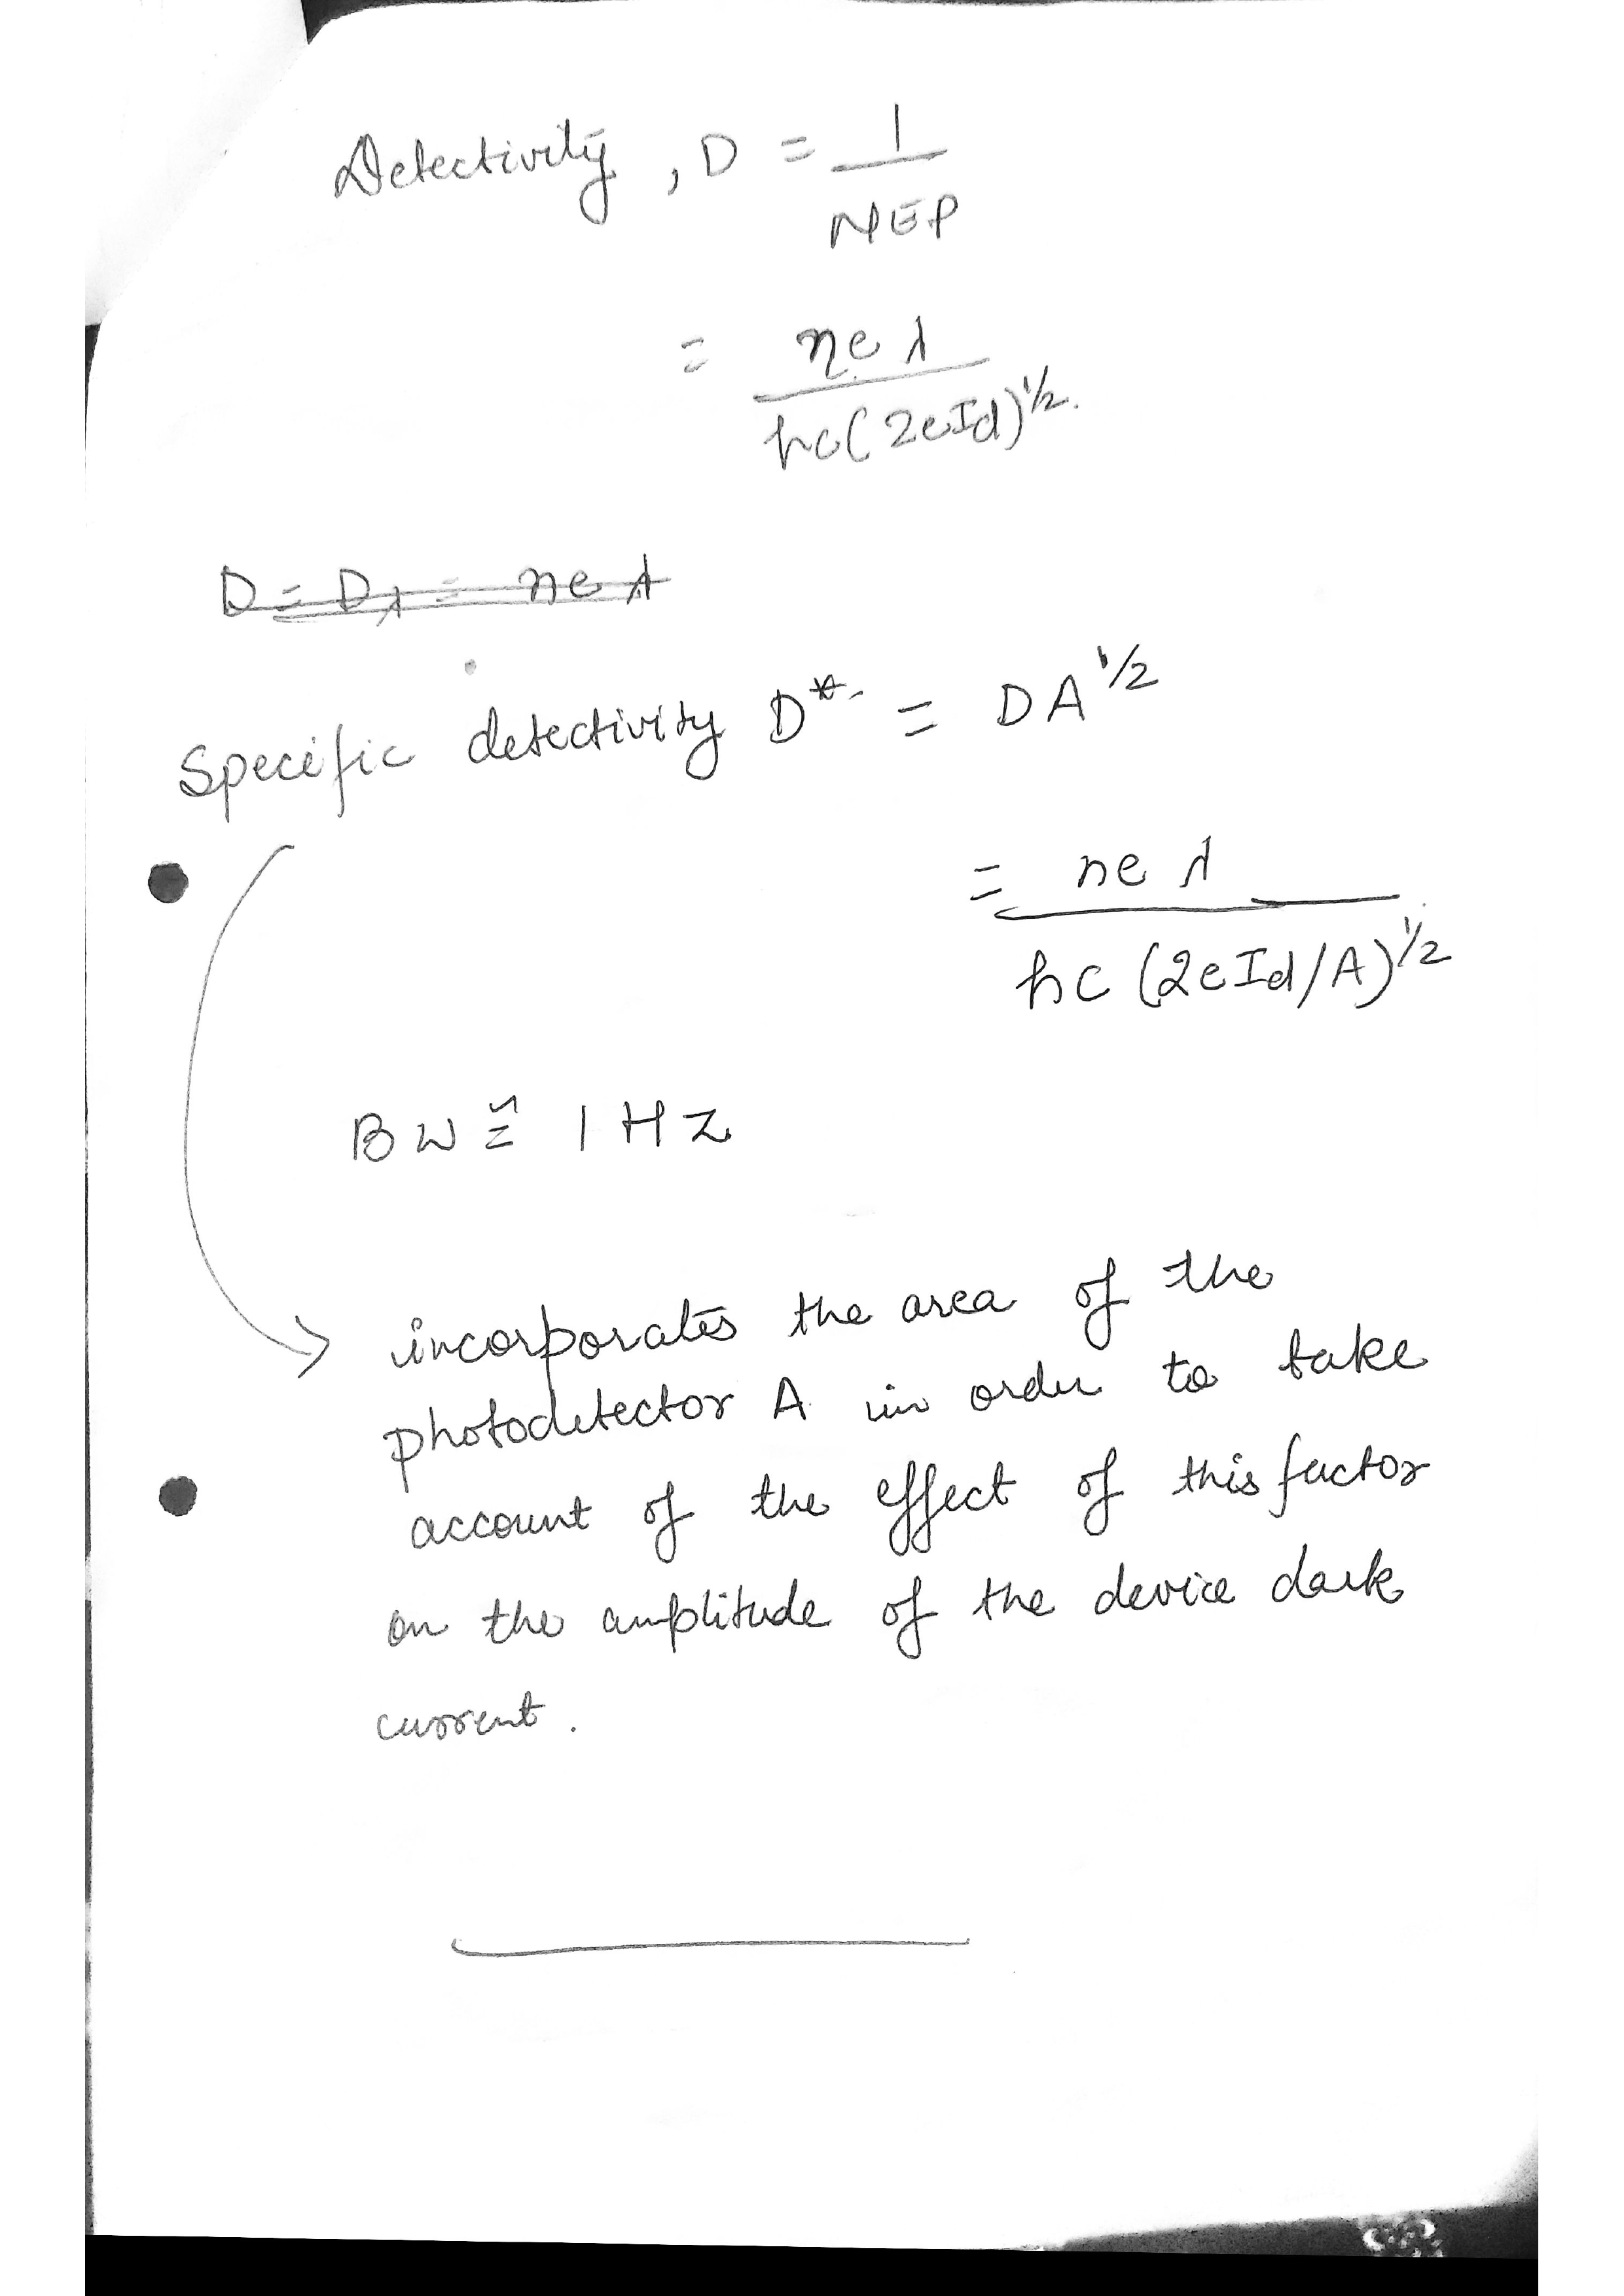 Detectivity, D = 1/NEP
= ηeλ / hc(2eId)^1/2.
D = Dλ = ηeλ
Specific detectivity D* = DA^1/2
= ηeλ / hc(2eId/A)^1/2
BW ≅ 1Hz
→ incorporates the area of the
photodetector A in order to take
account of the effect of this factor
on the amplitude of the device dark
current.